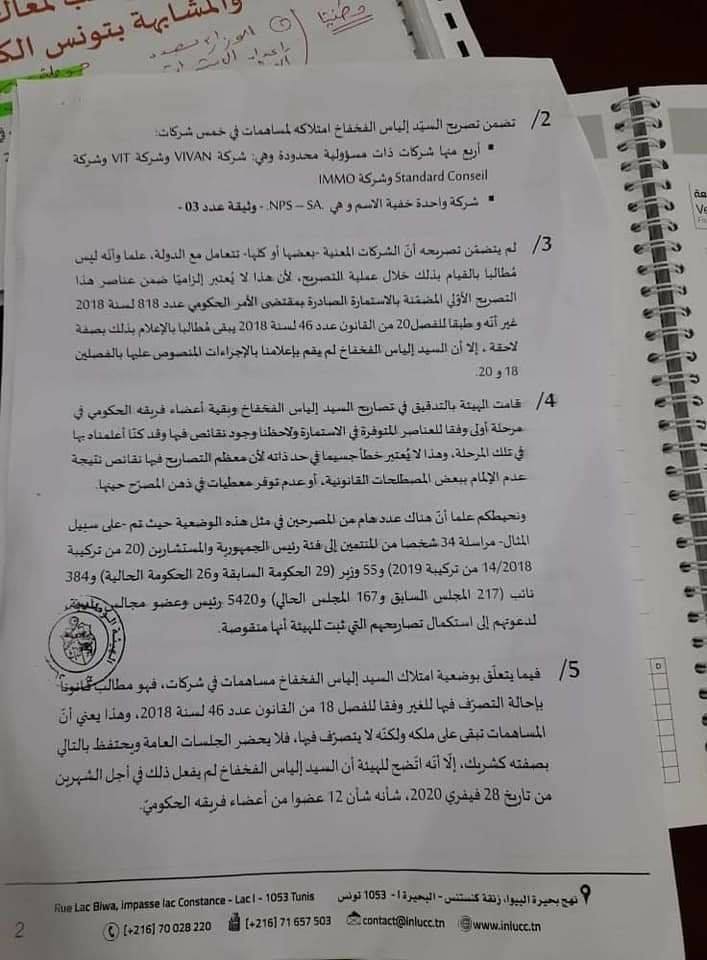 والمشابهة بتونس
وطنيا
2/ تضمن تصريح السيّد إلياس الفخفاخ امتلاكه لمساهمات في خمس شركات:
▪ أربع منها شركات ذات مسؤولية محدودة وهي: شركة VIVAN وشركة VIT وشركة
Standard Conseil وشركة IMMO.
▪ شركة واحدة خفية الاسم و هي NPS – SA. - وثيقة عدد 03 -
3/ لم يتضمّن تصريحه أنّ الشركات المعنية -بعضها أو كلها- تتعامل مع الدولة، علما وأنّه ليس
مُطالبا بالقيام بذلك خلال عملية التصريح، لأن هذا لا يُعتبر إلزاميّا ضمن عناصر هذا
التصريح الأوّلي المضمّنة بالاستمارة الصادرة بمقتضى الأمر الحكومي عدد 818 لسنة 2018
غير أنّه و طبقا للفصل 20 من القانون عدد 46 لسنة 2018 يبقى مُطالبا بالإعلام بذلك بصفة
لاحقة ، إلا أن السيد إلياس الفخفاخ لم يقم بإعلامنا بالإجراءات المنصوص عليها بالفصلين
18 و 20.
4/ قامت الهيئة بالتدقيق في تصاريح السيد إلياس الفخفاخ وبقية أعضاء فريقه الحكومي في
مرحلة أولى وفقا للعناصر المتوفرة في الاستمارة ولاحظنا وجود نقائص فيها وقد كنّا أعلمناه بها
في تلك المرحلة، وهذا لا يُعتبر خطأ جسيما في حد ذاته لأن معظم التصاريح فيها نقائص نتيجة
عدم الإلمام ببعض المصطلحات القانونية، أو عدم توفر معطيات في ذهن المصرّح حينها.
ونحيطكم علما أنّ هناك عدد هام من المصرحين في مثل هذه الوضعية حيث تم -على سبيل
المثال- مراسلة 34 شخصا من المنتمين إلى فئة رئيس الجمهورية والمستشارين (20 من تركيبة
14/2018 من تركيبة 2019) و55 وزير (29 الحكومة السابقة و26 الحكومة الحالية) و384
نائب (217 المجلس السابق و167 المجلس الحالي) و5420 رئيس وعضو مجالس
لدعوتهم إلى استكمال تصاريحهم التي ثبت للهيئة أنها منقوصة.
5/ فيما يتعلّق بوضعية امتلاك السيد إلياس الفخفاخ مساهمات في شركات، فهو مطالب قانونا
بإحالة التصرّف فيها للغير وفقا للفصل 18 من القانون عدد 46 لسنة 2018، وهذا يعني أنّ
المساهمات تبقى على ملكه ولكنّه لا يتصرّف فيها، فلا يحضر الجلسات العامة ويحتفظ بالتالي
بصفته كشريك، إلّا أنّه اتّضح للهيئة أن السيد إلياس الفخفاخ لم يفعل ذلك في أجل الشهرين
من تاريخ 28 فيفري 2020، شأنه شأن 12 عضوا من أعضاء فريقه الحكوميّ.
نهج بحيرة البيوا، زنقة كنستنس - البحيرة I - 1053 تونس Rue Lac Biwa, impasse lac Constance - Lac I - 1053 Tunis
[+216] 70 028 220 [+216] 71 657 503 contact@inlucc.tn www.inlucc.tn
2